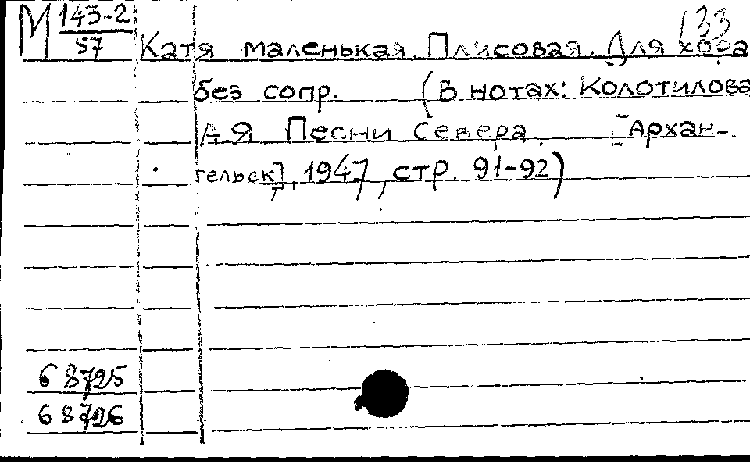 М 143-2
87
133
Катя маленькая. Плисовая. Для хора
без сопр. (В нотах: Колотилова
А.Я. Песни Севера. [Архан-
гельск], 1947, стр. 91-92)
68725
68726